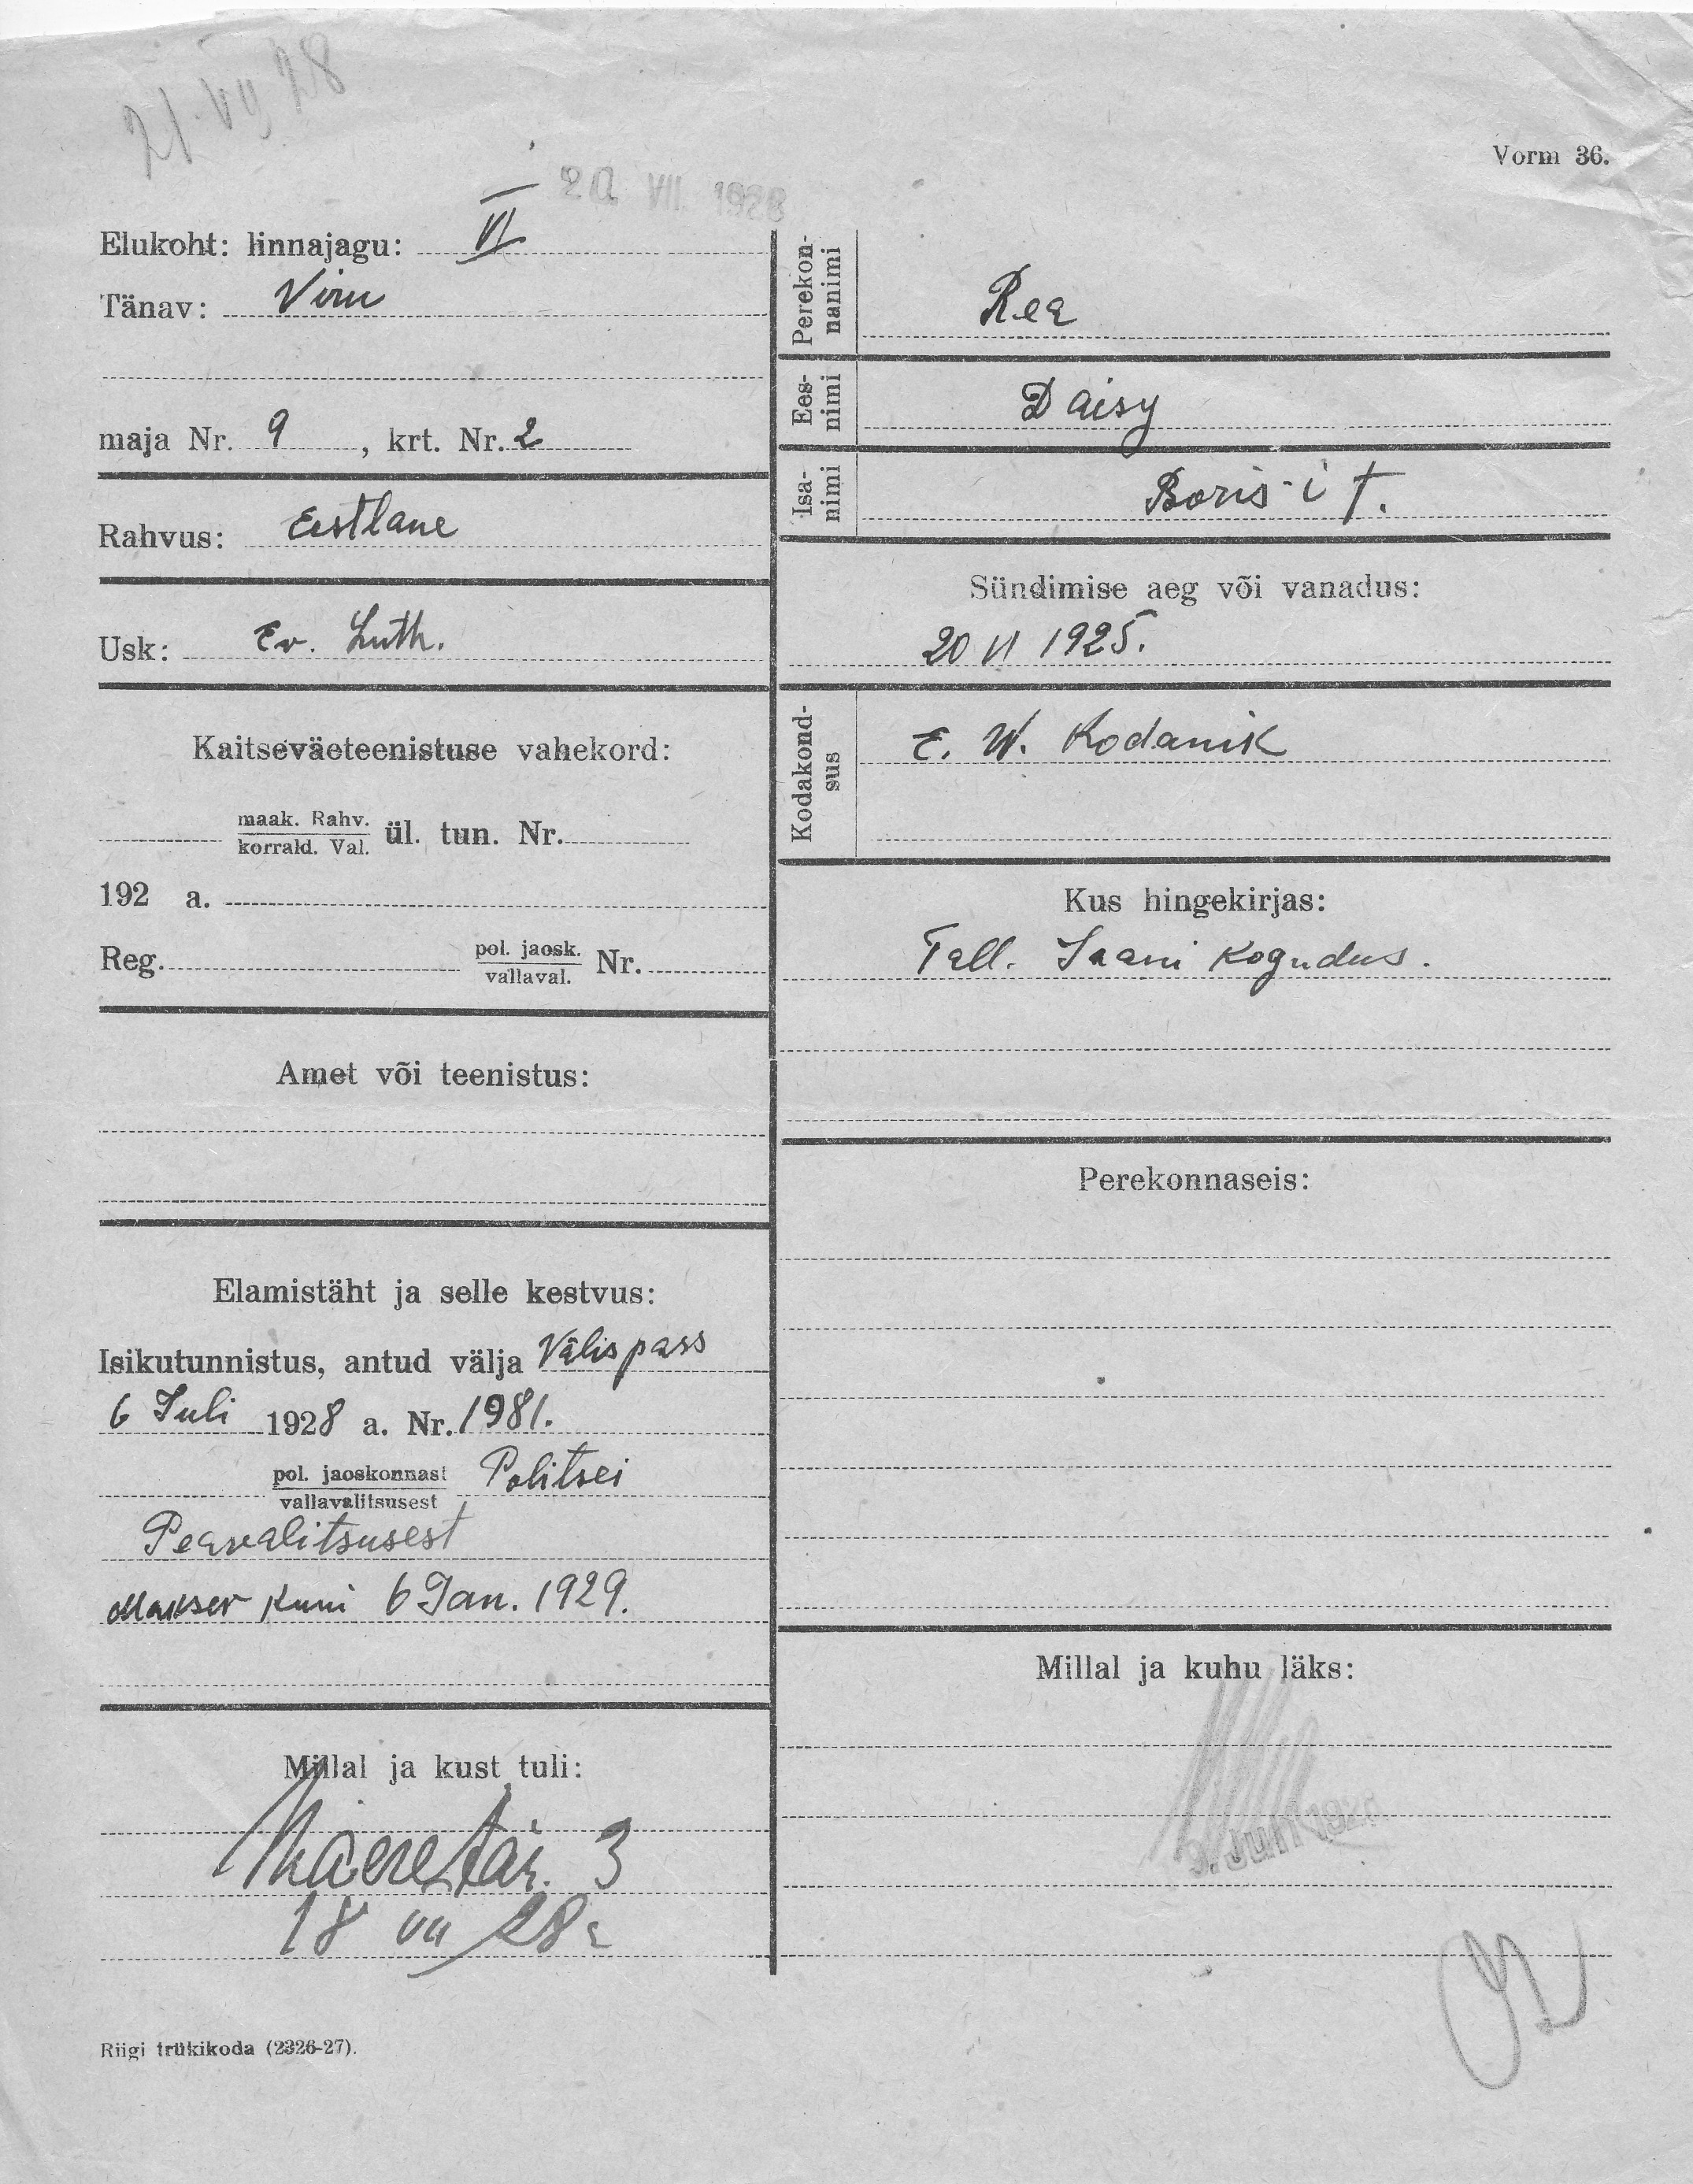 21. VII 28
20 VII 1928
Vorm 36.
Elukoht: linnajagu: VI
Tänav: Viru
maja Nr. 9, krt. Nr. 2
Rahvus: Eestlane
Usk: Ev. Luth.
Kaitseväeteenistuse vahekord:
maak. Rahv.
korrald. Val.
ül. tun. Nr.
192 a.
Reg. pol. jaosk.
vallaval. Nr.
Amet või teenistus:
Elamistäht ja selle kestvus:
Isikutunnistus, antud välja Välispass
6 Juli 1928 a. Nr. 1981.
pol. jaoskonnast
vallavalitsusest
Politsei
Peavalitsusest
Maksev kuni 6 Jan. 1929.
Millal ja kust tuli:
3
18 VII 28
Riigi trükikoda (2326-27).
Perekon-
nanimi
Rea
Ees-
nimi
Daisy
Isa-
nimi
Boris-i t.
Sündimise aeg või vanadus:
20 VI 1925.
Kodakond-
sus
E. W. Kodanik
Kus hingekirjas:
Tall. Jaani kogudus.
Perekonnaseis:
Millal ja kuhu läks: